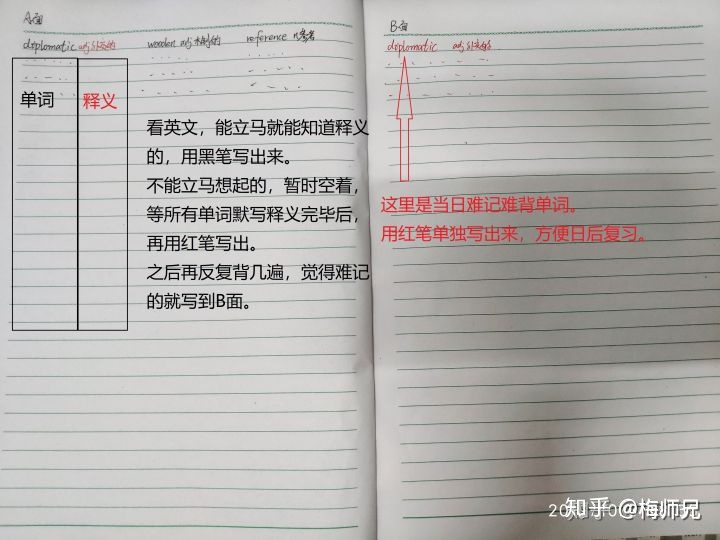 A面
deplomatic adj外交的 wooden adj木制的 reference n参考
单词 释义
看英文，能立马就能知道释义
的，用黑笔写出来。
不能立马想起的，暂时空着，
等所有单词默写释义完毕后，
再用红笔写出。
之后再反复背几遍，觉得难记
的就写到B面。
B面
deplomatic adj外交的
这里是当日难记难背单词。
用红笔单独写出来，方便日后复习。
知乎 @梅师兄